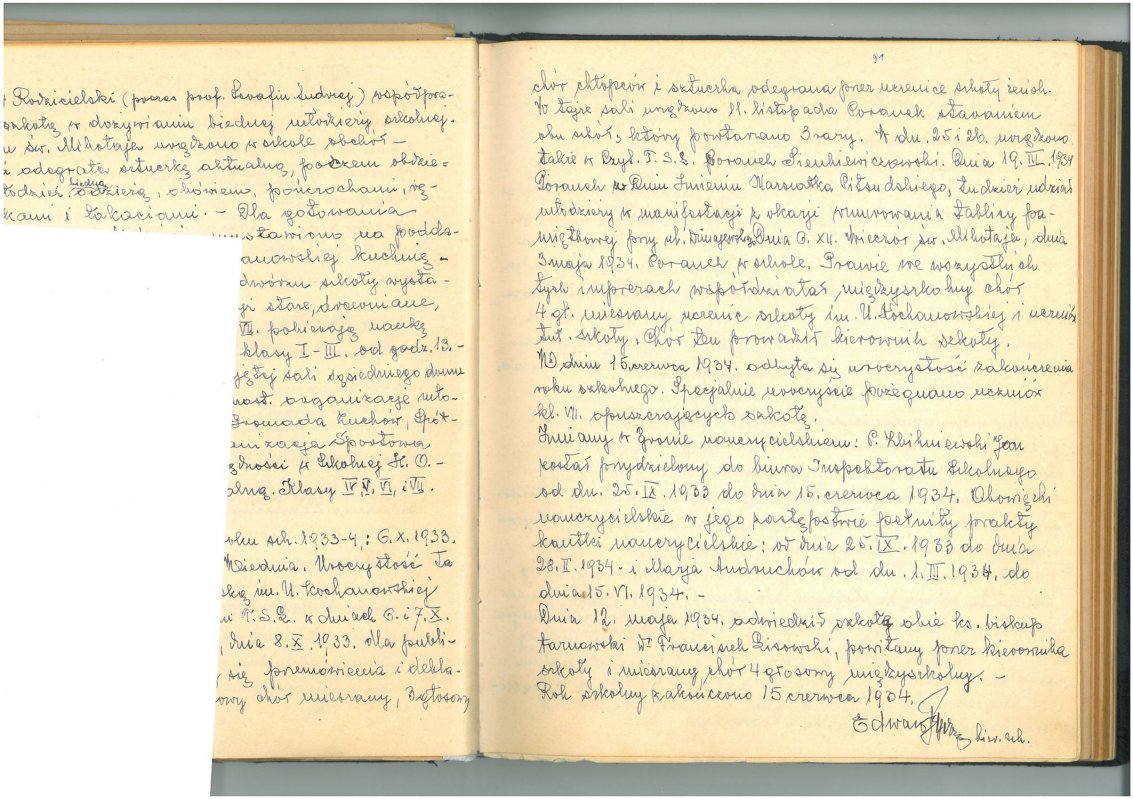 Rodzicielski (prezes prof. Serafin Ludwej) współpra-
szkołą w dożywianiu biednej młodzieży szkolnej.
św. Mikołaja urządzono w szkole obchód -
odegrała sztuczkę aktualną, poczem obdzie-
biedną
odzieżą, obówiem, pończochami, rę-
kami i łakociami. - Dla gotowania
wstawiono na podda-
anowskiej kuchnię -
dwórzu szkoły wysta-
stare, drewniane,
VII. pobierają naukę
klasy I - III. od godz. 13. -
jętej sali sąsiedniego domu
nast. organizacje mło-
Gromada Zuchów, Spół-
anizacja Sportowa
w Szkolnej K. O. -
alną. Klasy IV, V, VI, i VII.
oku szk. 1933-4,: 6. X. 1933.
Wiednia. Uroczystość Ta
ską im. U. Kochanowskiej
T. S. L. w dniach 6. i 7. X.
, dnia 8. X. 1933. dla publi-
się przemówienia i dekla-
owy chór mieszany, 3 głosowy
91
chór chłopców i sztuczka odegrana przez uczenice szkoły żeńsk.
W tejże sali urządzono 11. listopada Poranek staraniem
obu szkół, który powtarzano 3 razy. W dn. 25 i 26. urządzono
także w Czyt. T. S. L. Poranek Sienkiewiczowski. Dnia 19. III. 1934
Poranek w Dniu Imienin Marszałka Piłsudskiego, tudzież udział
młodzieży w manifestacji z okazji wmurowania tablicy pa-
miątkowej przy ul. Dunajewskiego. Dnia 6. XII. Wieczór św. Mikołaja, dnia
3 maja 1934. Poranek w szkole. Prawie we wszystkich
tych imprezach współdziałał międzyszkolny chór
4 gł. mieszany uczenic szkoły im. U. Kochanowskiej i uczniów
tut. szkoły. Chór ten prowadził kierownik szkoły.
W dniu 15. czerwca 1934. odbyła się uroczystość zakończenia
roku szkolnego. Specjalnie uroczyście pożegnano uczniów
kl. VII. opuszczających szkołę.
Zmiany w Gronie nauczycielskiem: P. Kbihniewski Jan
został przydzielony do biura Inspektoratu Szkolnego
od dn. 25. IX. 1933 do dnia 15. czerwca 1934. Obowiązki
nauczycielskie w jego zastępstwie pełniły prakty
kantki nauczycielskie: od dnia 25. IX. 1933 do dnia
28. II. 1934 - i Marja Andruchów od dn. 1. III. 1934, do
dnia 15. VI. 1934. -
Dnia 12. maja 1934. odwiedził szkołę obie ks. biskup
tarnowski Dr Franciszek Lisowski, powitany przez kierownika
szkoły i mieszany chór 4 głosowy międzyszkolny. -
Rok szkolny zakończono 15 czerwca 1934.
Edward
kier. szk.